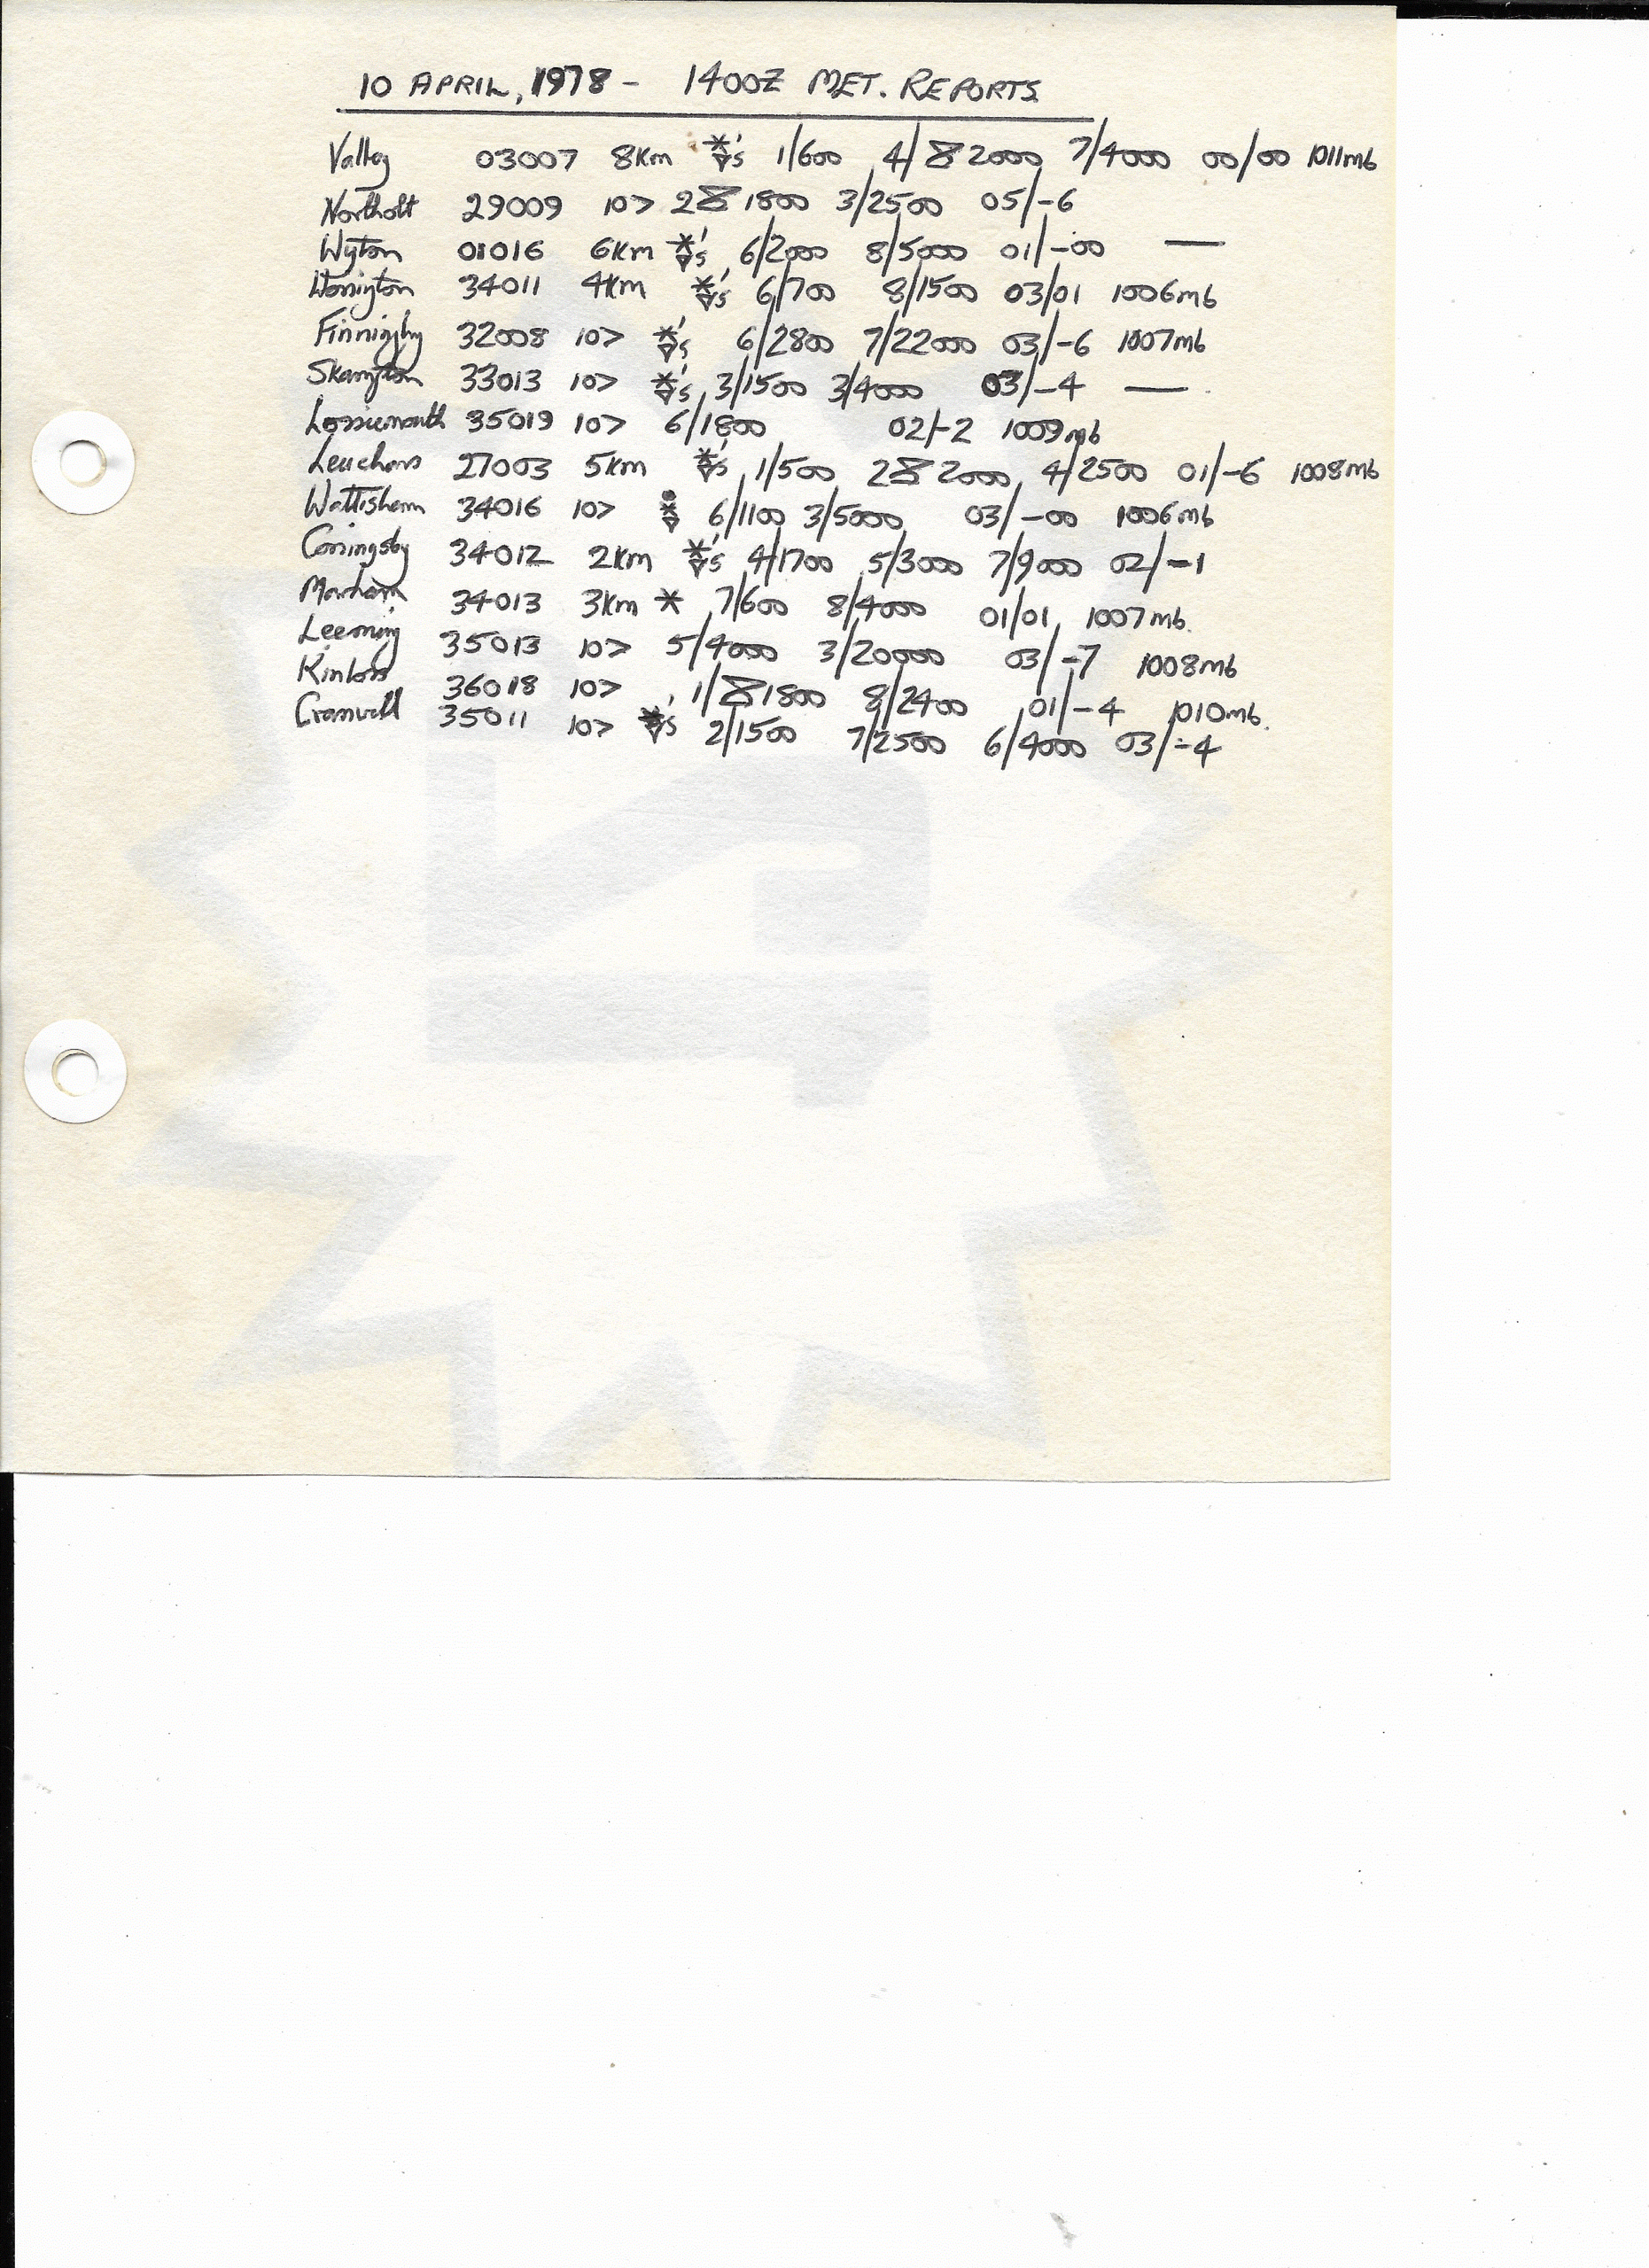 10 APRIL, 1978 - 1400Z MET. REPORTS
Valley 03007 8Km 's 1/600 4/ 2000 7/4000 00/00 1011mb
Northolt 29009 10> 2 1800 3/2500 05/-6
Wyton 01016 6Km 's 6/2000 8/5000 01/-00 —
Honington 34011 4Km 's 6/700 8/1500 03/01 1006mb
Finnigby 32008 10> 's 6/2800 7/22000 03/-6 1007mb
Skampton 33013 10> 's 3/1500 3/4000 03/-4 —
Lossiemouth 35019 10> 6/1800 02/-2 1009mb
Leuchars 27003 5Km 's 1/500 2 2000 4/2500 01/-6 1008mb
Wattisham 34016 10> 6/1100 3/5000 03/-00 1006mb
Coningsby 34012 2Km 's 4/1700 5/3000 7/9000 02/-1
Marham 34013 3Km * 7/600 8/4000 01/01 1007mb.
Leeming 35013 10> 5/4000 3/20000 03/-7 1008mb
Kinloss 36018 10> 1/ 1800 8/2400 01/-4 1010mb.
Cranwell 35011 10> 's 2/1500 7/2500 6/4000 03/-4